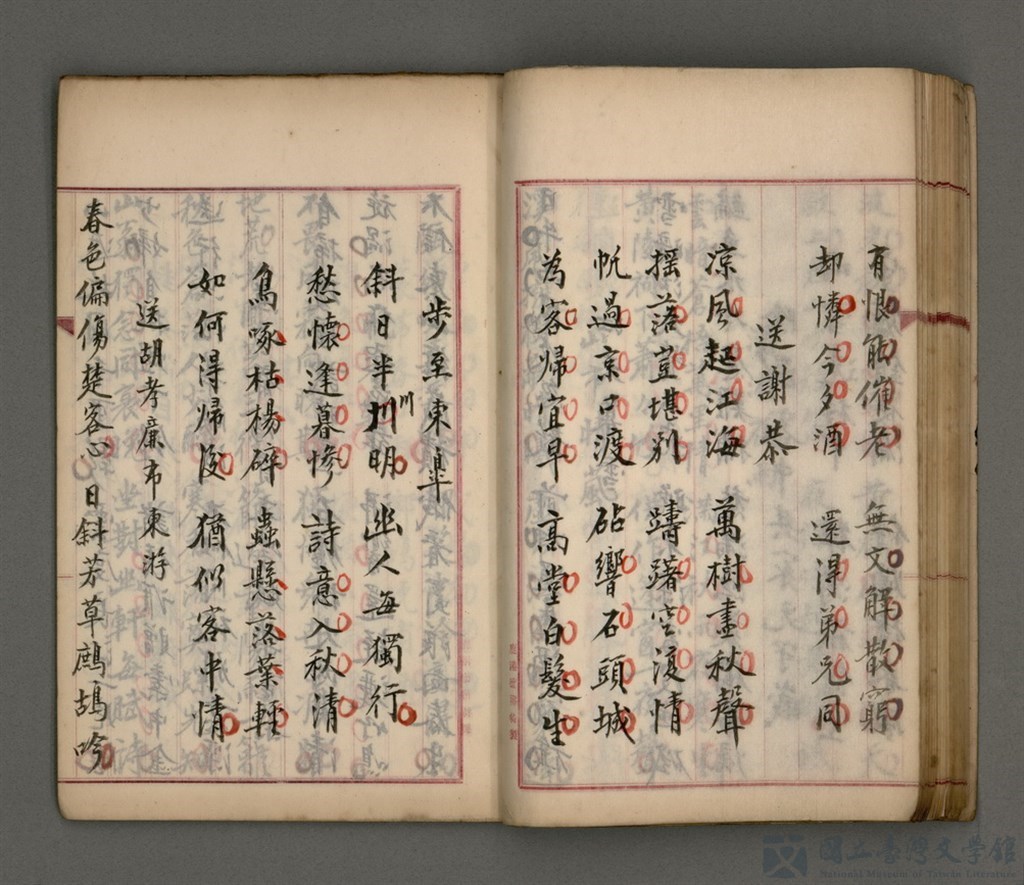 有恨能催老 無文解散窮
却憐今夕酒 還得弟兄同
送謝恭
涼風起江海 萬樹盡秋聲
搖落豈堪別 躊躇空復情
帆過京口渡 砧響石頭城
為客帰宜早 高堂白髮生
步至東皐
斜日半川明 幽人每獨行
愁懷逢暮慘 詩意入秋清
鳥啄枯楊碎 蟲懸落葉輕
如何得帰後 猶似客中情
送胡孝廉東游
春色偏傷楚客心 日斜芳草鷓鴣吟
國立臺灣文學館
National Museum of Taiwan Literature